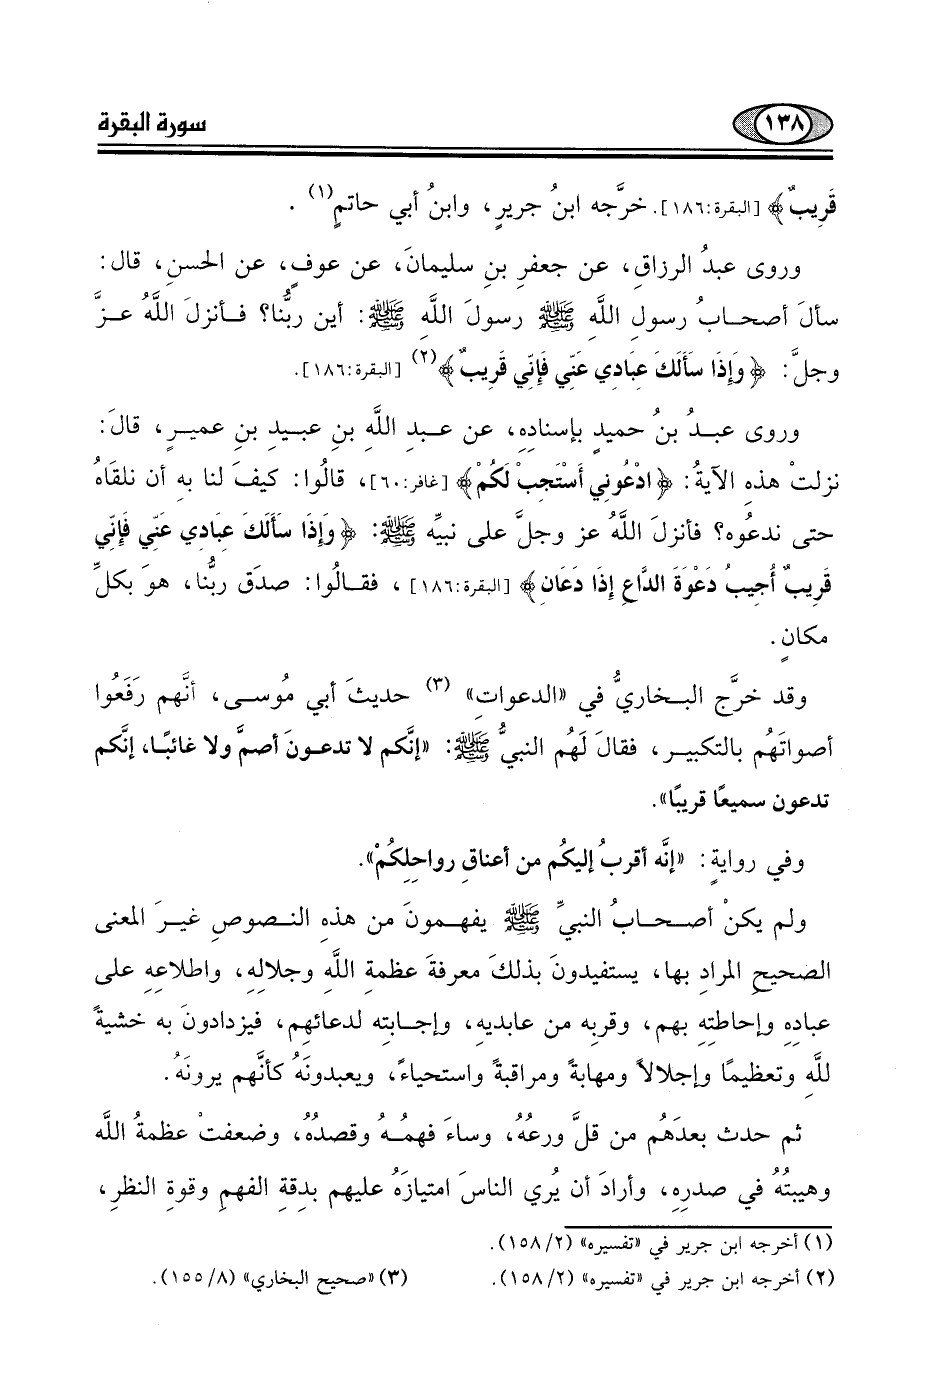 ١٣٨ سورة البقرة
قَرِيبٌ﴾ [البقرة:١٨٦]. خرَّجه ابنُ جريرٍ، وابنُ أبي حاتمٍ(١) .
وروى عبدُ الرزاقِ، عن جعفرِ بنِ سليمانَ، عن عوفٍ، عن الحسنِ، قال:
سألَ أصحابُ رسولِ اللَّهِ ﷺ رسولَ اللَّهِ ﷺ: أين ربُّنا؟ فأنزلَ اللَّهُ عزَّ
وجلَّ: ﴿وَإِذَا سَأَلَكَ عِبَادِي عَنِّي فَإِنِّي قَرِيبٌ﴾(٢) [البقرة:١٨٦].
وروى عبدُ بنُ حميدٍ بإسنادِهِ، عن عبدِ اللَّهِ بنِ عبيدِ بنِ عميرٍ، قال:
نزلتْ هذه الآيةُ: ﴿ادْعُونِي أَسْتَجِبْ لَكُمْ﴾ [غافر:٦٠]، قالُوا: كيفَ لنا به أن نلقاهُ
حتى ندعُوه؟ فأنزلَ اللَّهُ عز وجلَّ على نبيِّه ﷺ: ﴿وَإِذَا سَأَلَكَ عِبَادِي عَنِّي فَإِنِّي
قَرِيبٌ أُجِيبُ دَعْوَةَ الدَّاعِ إِذَا دَعَانِ﴾ [البقرة:١٨٦] ، فقالُوا: صدَق ربُّنا، هو بكلِّ
مكانٍ.
وقد خرَّج البخاريُّ في «الدعواتِ» (٣) حديثَ أبي مُوسى، أنَّهم رَفَعُوا
أصواتَهُم بالتكبيرِ، فقالَ لَهُم النبيُّ ﷺ: «إنَّكم لا تدعونَ أصمَّ ولا غائبًا، إنَّكم
تدعون سميعًا قريبًا».
وفي روايةٍ: «إنَّه أقربُ إليكُم من أعناقِ رواحلِكُمْ».
ولم يكنْ أصحابُ النبيِّ ﷺ يفهمونَ من هذه النصوصِ غيرَ المعنى
الصحيحِ المرادِ بها، يستفيدونَ بذلكَ معرفةَ عظمةِ اللَّهِ وجلالِهِ، واطلاعِهِ على
عبادِهِ وإحاطتِهِ بهم، وقربِهِ من عابديهِ، وإجابتِه لدعائِهم، فيزدادونَ به خشيةً
للَّهِ وتعظيمًا وإجلالاً ومهابةً ومراقبةً واستحياءً، ويعبدونَهُ كأنَّهم يرونَهُ.
ثم حدث بعدَهُم من قلَّ ورعُهُ، وساءَ فهمُهُ وقصدُهُ، وضعفتْ عظمةُ اللَّه
وهيبتُهُ في صدرِهِ، وأرادَ أن يُري الناسَ امتيازَهُ عليهم بدقةِ الفهمِ وقوةِ النظرِ،
(١) أخرجه ابن جرير في «تفسيره» (١٥٨/٢).
(٢) أخرجه ابن جرير في «تفسيره» (١٥٨/٢). (٣) «صحيح البخاري» (١٥٥/٨).